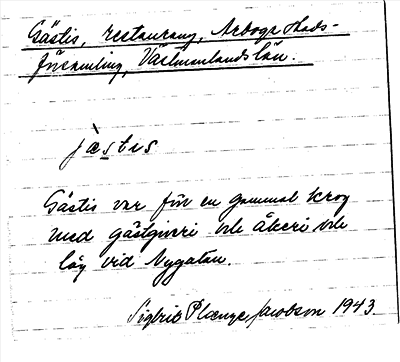 Gästis, restaurang, Arboga stads-
församling, Västmanlands län.
jæstis
Gästis var förr en gammal krog
med gästgiveri och åkeri och
låg vid Nygatan.
Sigbrit Plænge Jacobson 1943